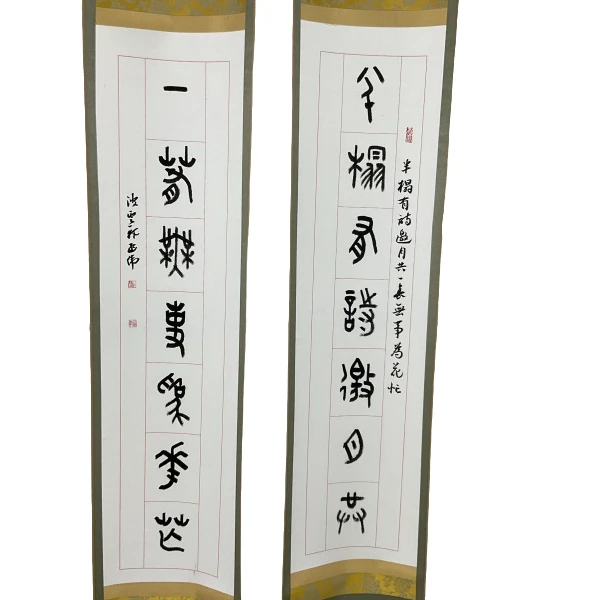 半榻有詩邀月共
半榻有詩邀月共一春無事為花忙
一春無事為花忙